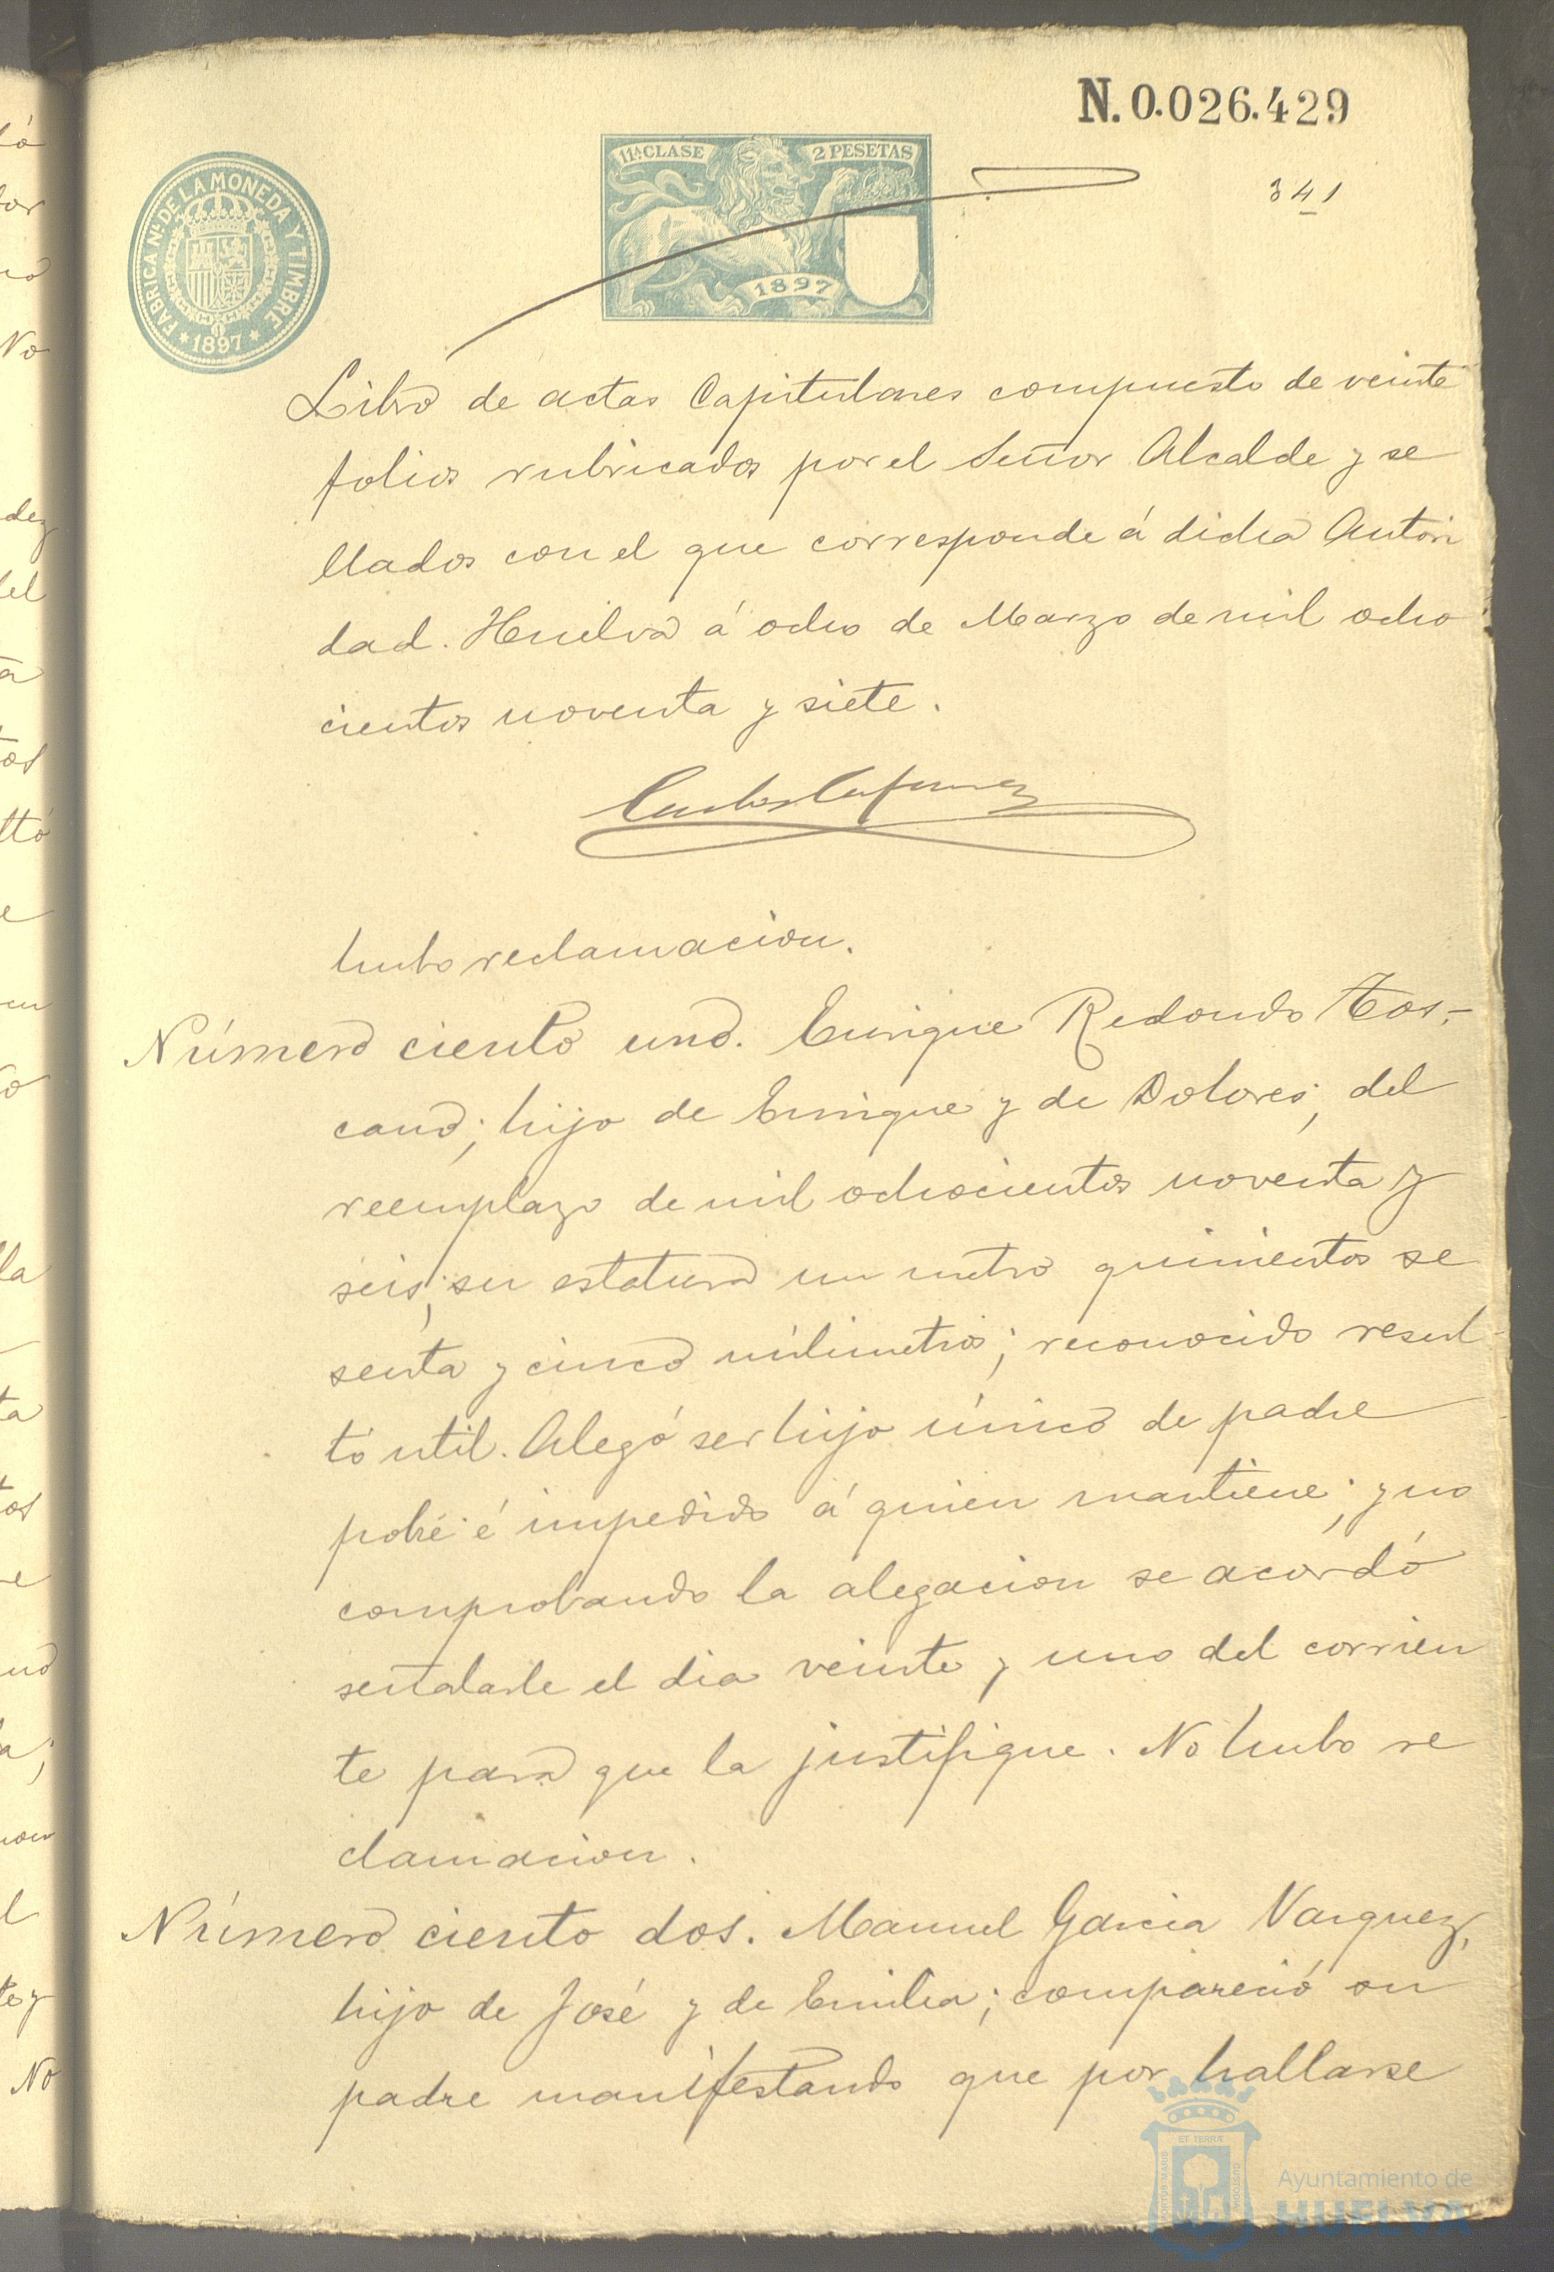 N. 0.026.429
11ª CLASE 2 PESETAS
1897
FABRICA Nal DE LA MONEDA Y TIMBRE
* 1897 *
341
Libro de actas Capitulares compuesto de veinte
folios rubricados por el Señor Alcalde y se
llados con el que corresponde á dicha Autori
dad. Huelva á ocho de Marzo de mil ocho
cientos noventa y siete.
hubo reclamacion.
Número ciento uno. Enrique Redondo Tos-
cano; hijo de Enrique y de Dolores, del
reemplazo de mil ochocientos noventa y
seis; su estatura un metro quinientos se
senta y cinco milimetros; reconocido resul-
tó util. Alegó ser hijo único de padre
pobre é impedido á quien mantiene; y no
comprobando la alegacion se acordó
señalarle el dia veinte y uno del corrien
te para que la justifique. No hubo re
clamacion.
Número ciento dos. Manuel Garcia Vazquez,
hijo de José y de Emilia; compareció su
padre manifestando que por hallarse
Ayuntamiento de
HUELVA